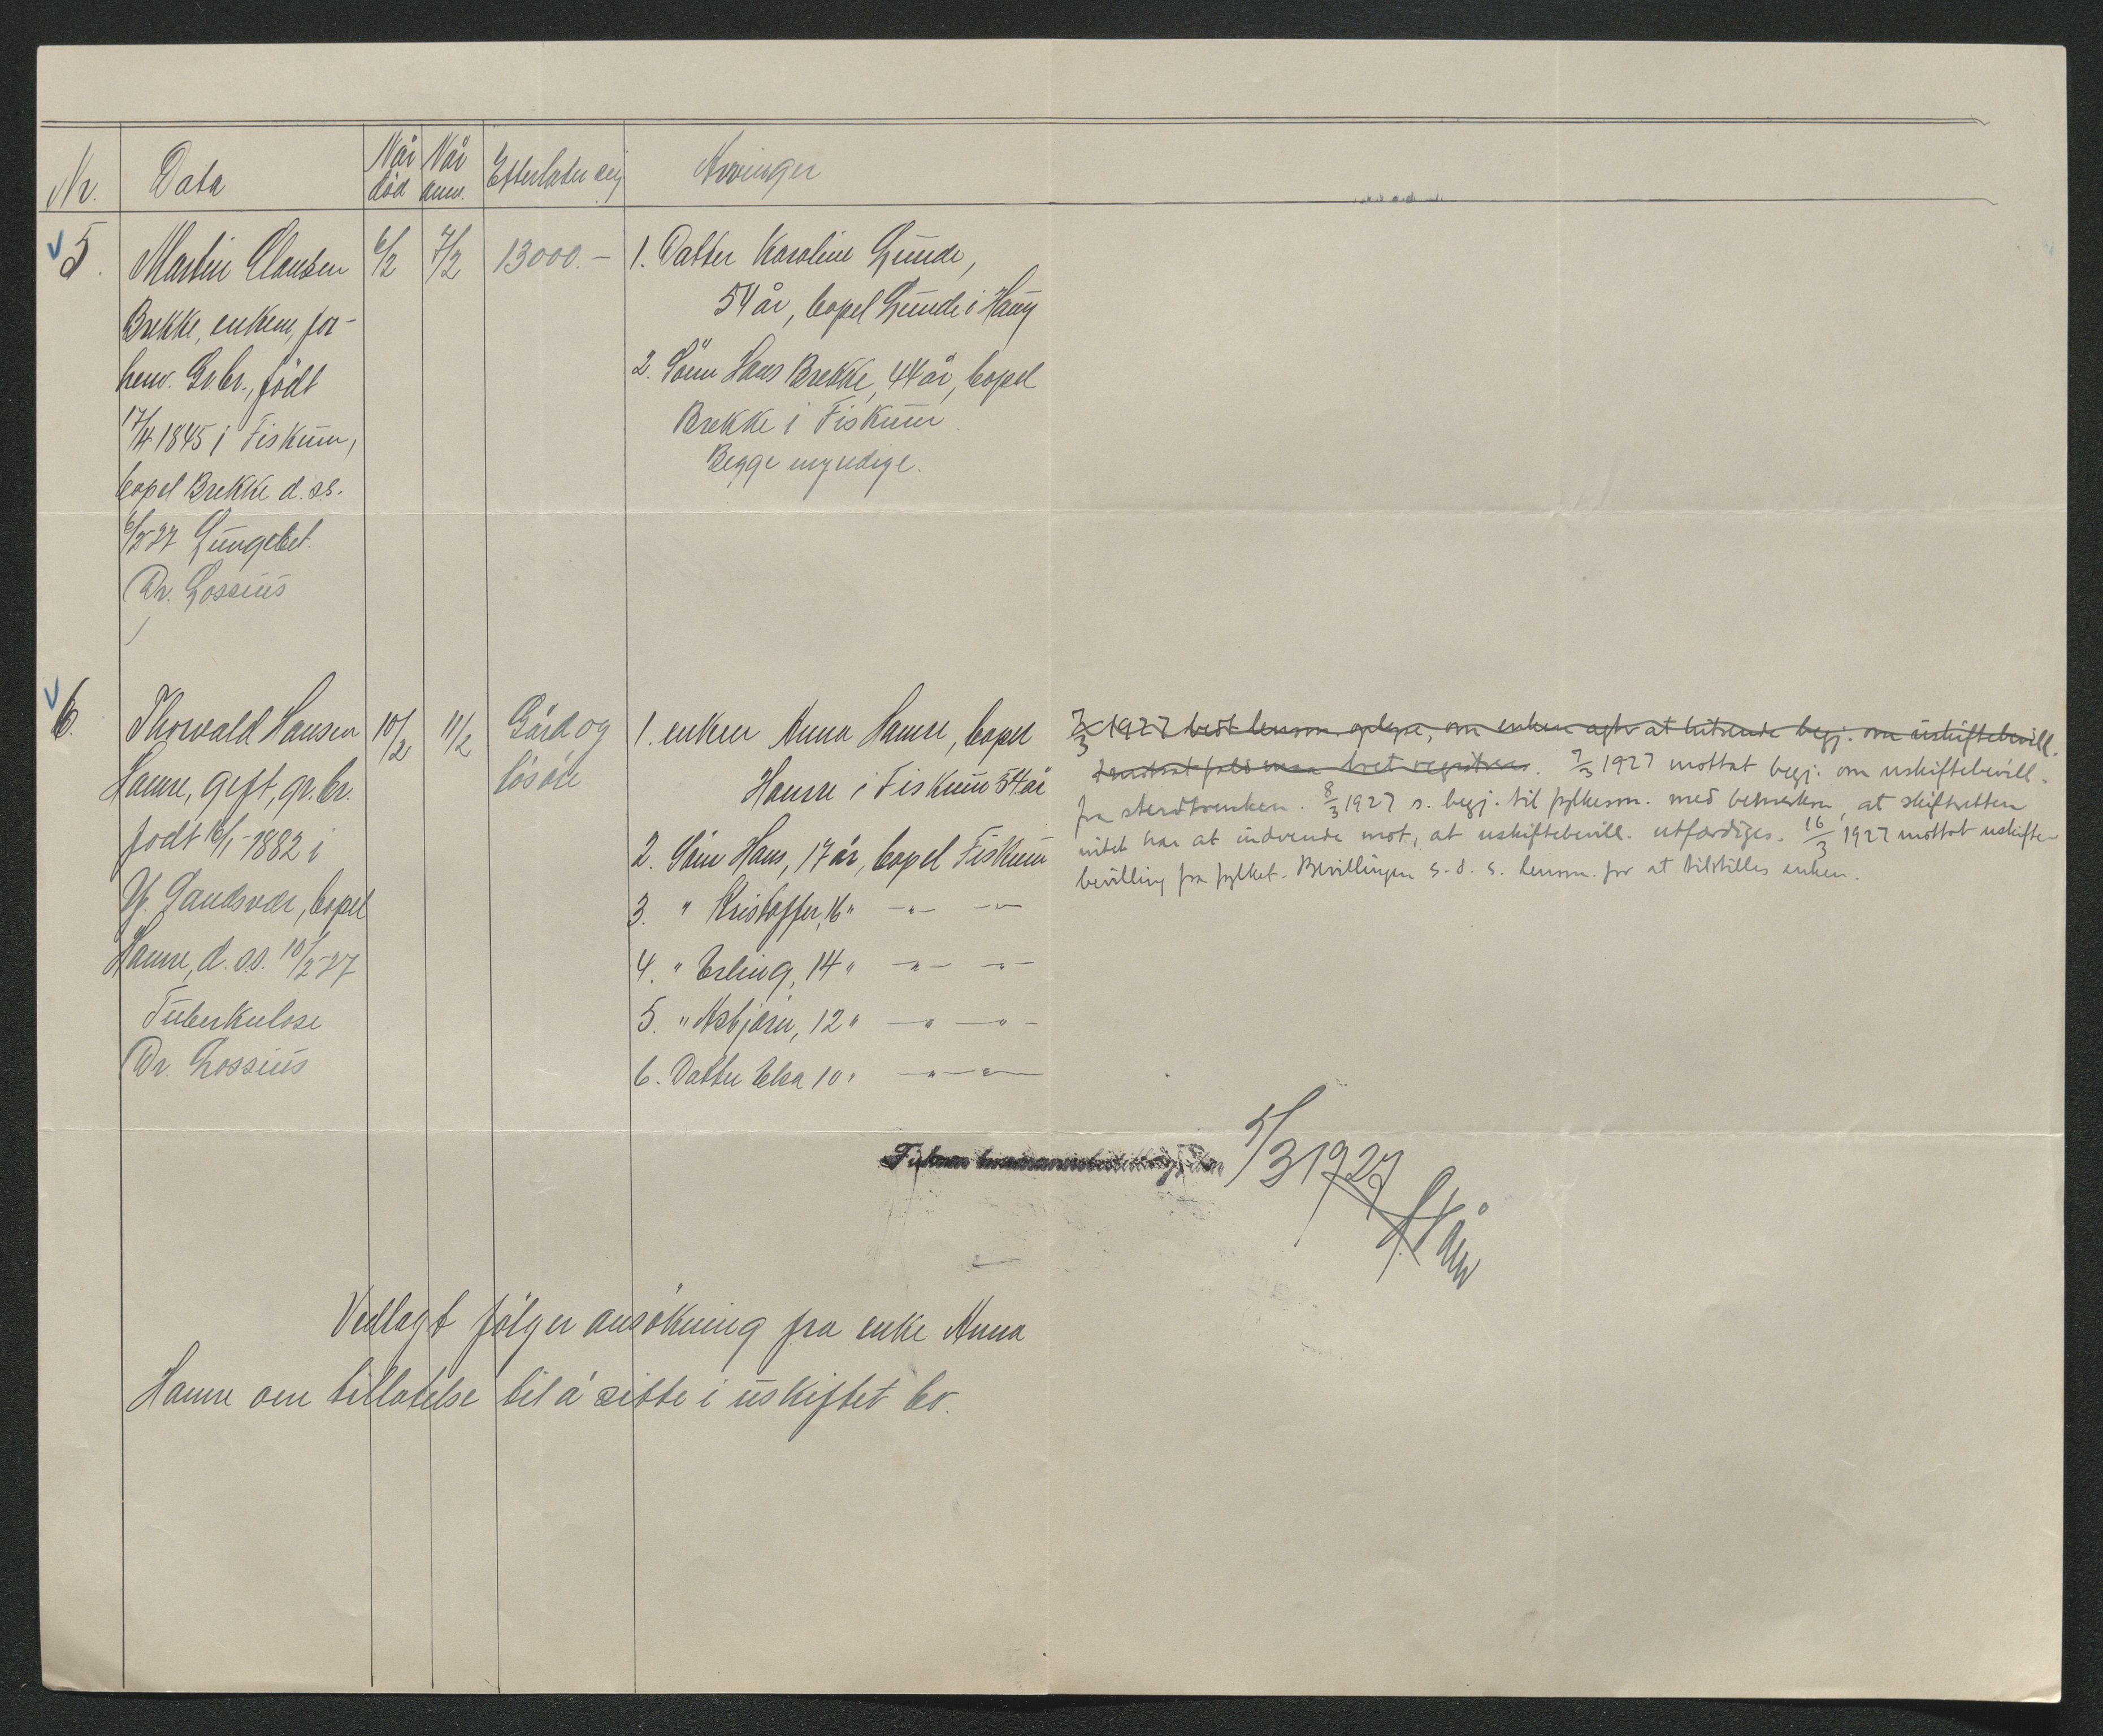 Nr.
Data
Når
død
Når
anm.
Efterlater sig
Arvinger
5.
Martin Clausen
Brekke, enkem, for-
henv. Gr.br., födt
17/4 1845 i Fiskum,
bopel Brekke d. ss.
6/2-27 Lungebet.
Dr. Lossius
6/2
7/2
13000.-
1. Datter Karoline Lunde,
54 år, bopel Lunde i Haug
2. Sönn Hans Brekke, 44 år, bopel
Brekke i Fiskum.
Begge myndige.
6.
Thorvald Hansen
Hamre, gift, gr.br.
født 16/1-1882 i
Y. Sandsvær, bopel
Hamre, d. ss. 10/2-27
Tuberkulose
Dr. Lossius
10/2
11/2
Gård og
lösöre
1. enken Anna Hamre, bopel
Hamre i Fiskum 54 år
2. Sönn Hans, 17 år, bopel Fiskum
3. " Kristoffer, 16 " -"- -"-
4. " Erling, 14 " -"- -"-
5. " Asbjörn, 12 " -"- -"-
6. Datter Elsa 10 " -"- -"-
7/3 1927 bedt lensm. oplyse, om enken agter at indsende begj. om uskiftebevill.
I motsat fald maa boet registreres. 7/3 1927 mottat begj. om uskiftebevill.
fra 8/3 1927 s. begj. til fylkesm. med bemerkn., at skifteretten
intet har at indvende mot, at uskiftebevill. utfærdiges. 16/3 1927 mottat uskifte-
bevilling fra fylket. Bevillingen s. d. s. lensm. for at tilstilles enken.
5/3 1927
Vedlagt fölger ansökning fra enke Anna
Hamre om tillatelse til å sitte i uskiftet bo.